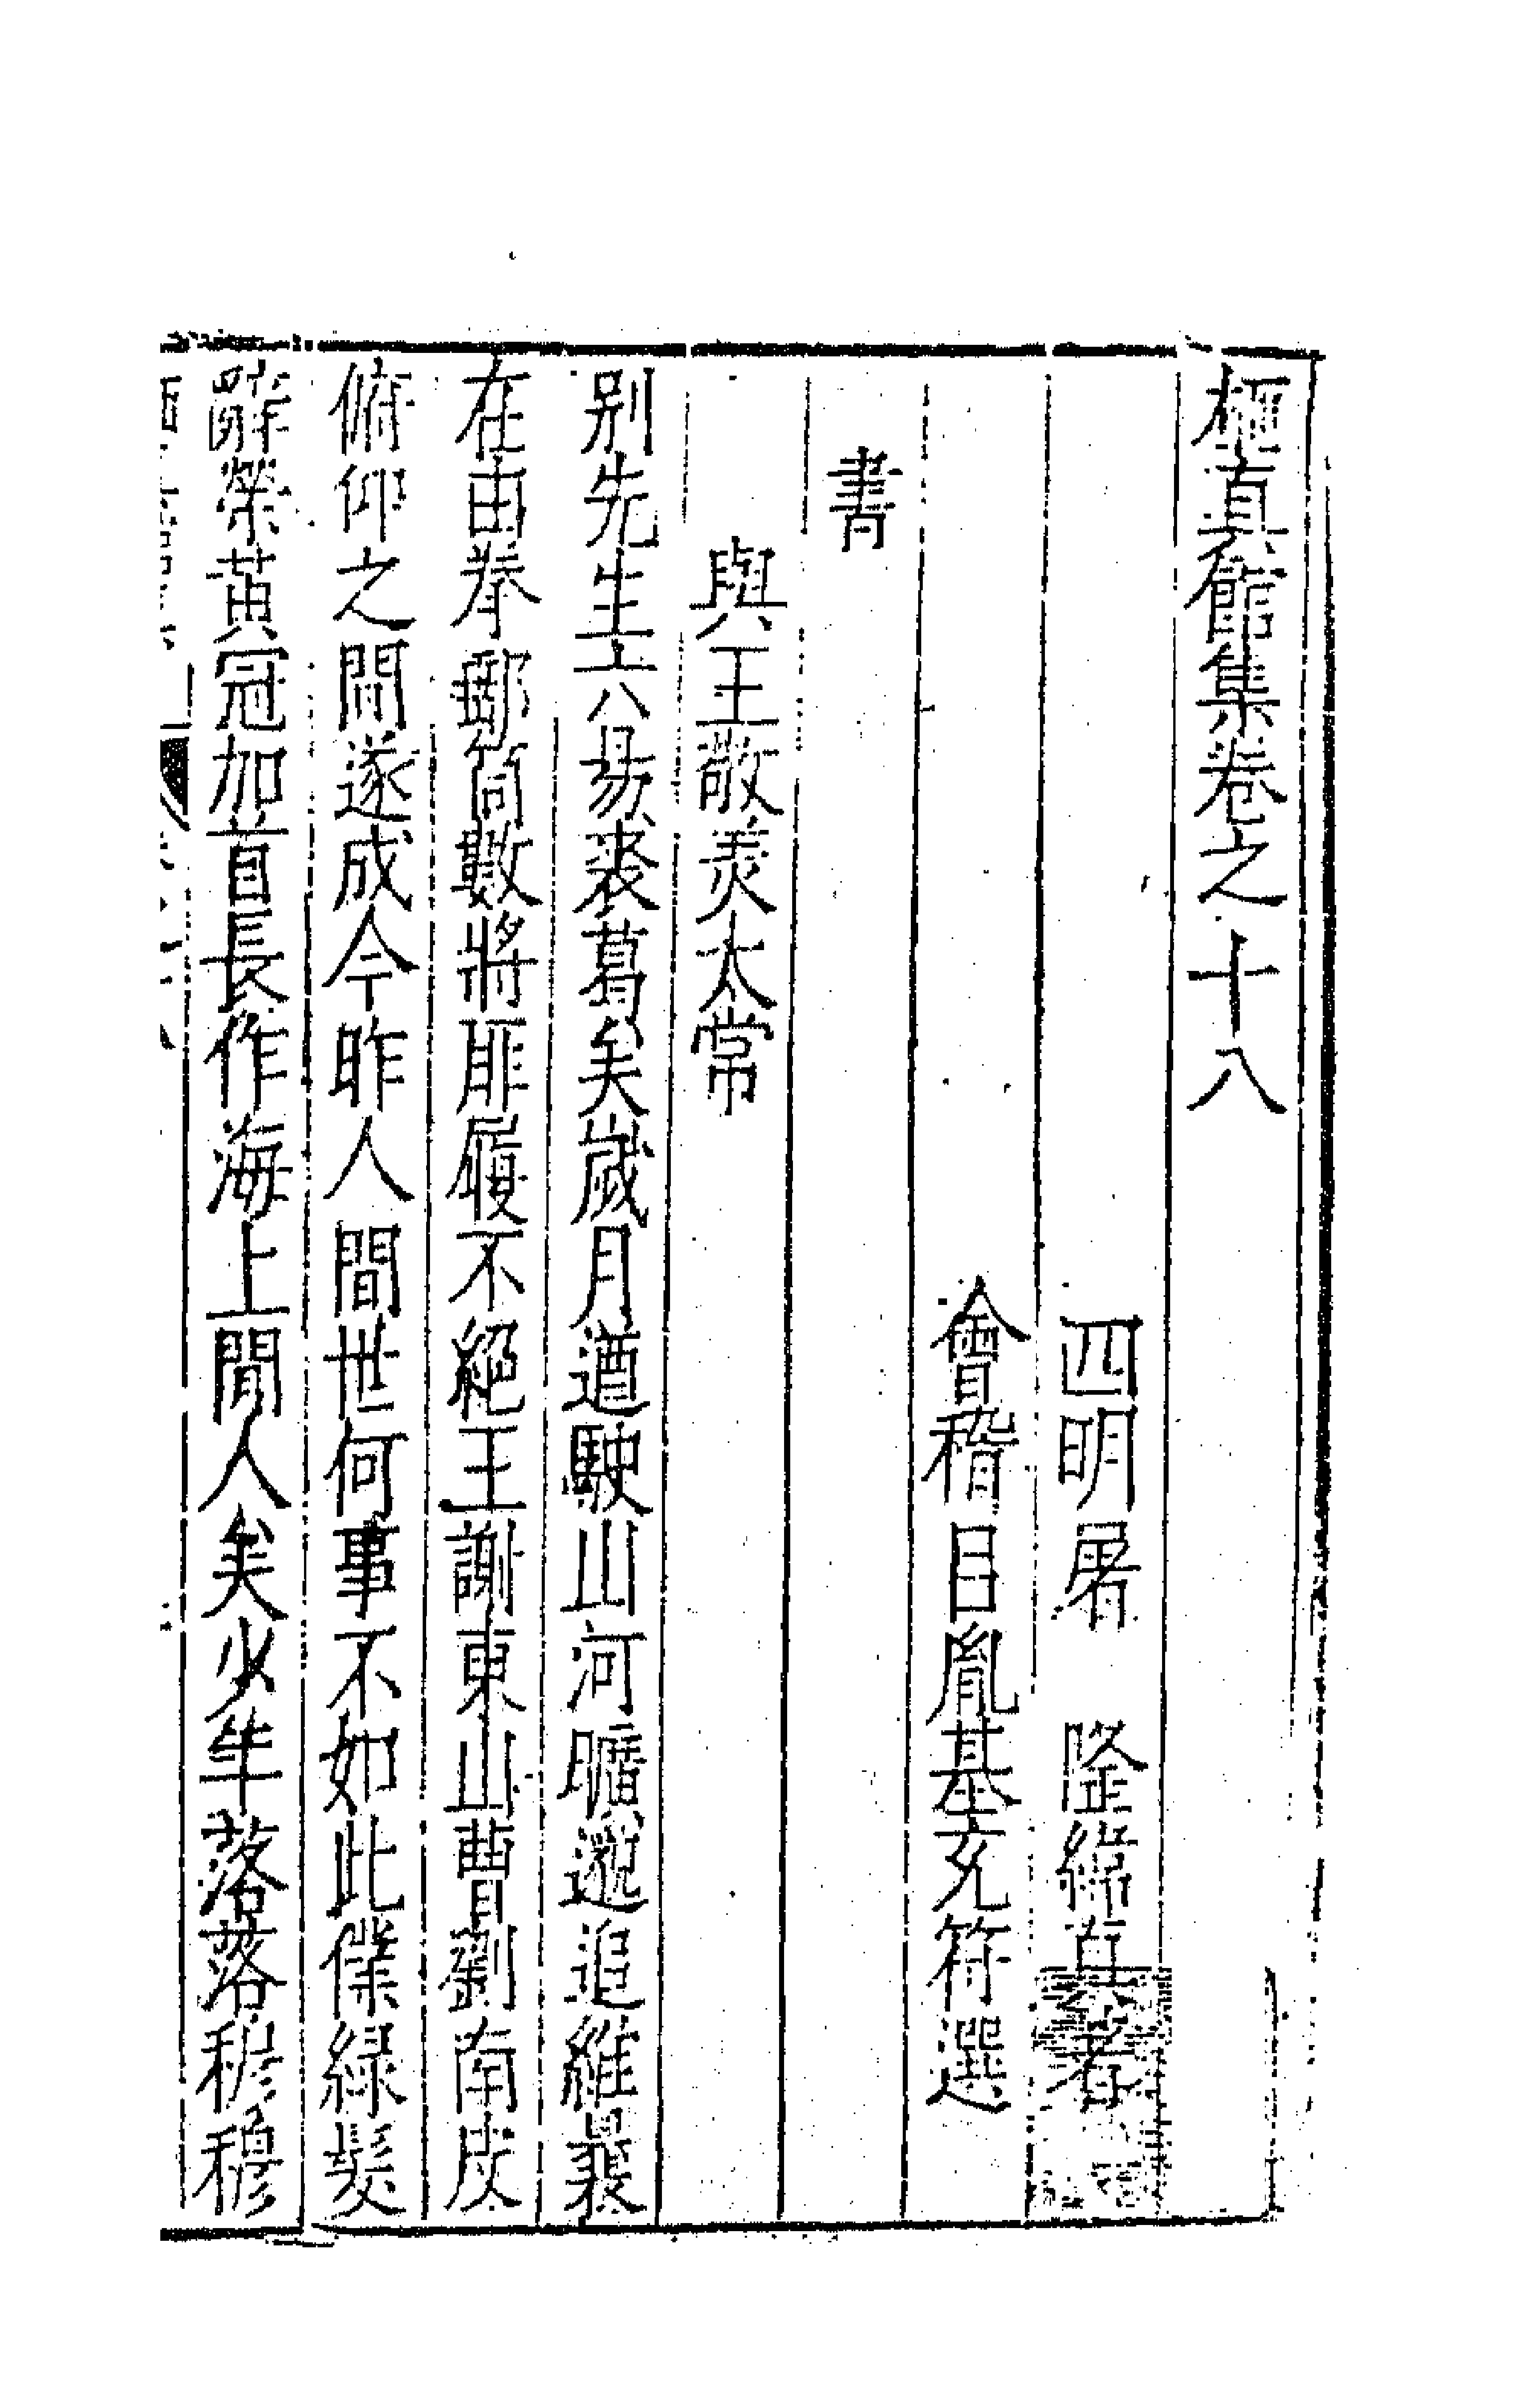 栖真館集卷之十八
四明屠　隆緯真著
會稽呂胤基充符選
書
與王敬羙太常
别先生六易裘葛矣歲月遒駛山河曠邈追維曩
在由拳郵筒數將屝履不絕王謝東山曹劉南皮
俯仰之間遂成今昨人間世何事不如此僕綠髮
辭榮黄冠加首長作海上閒人矣少年落落穆穆